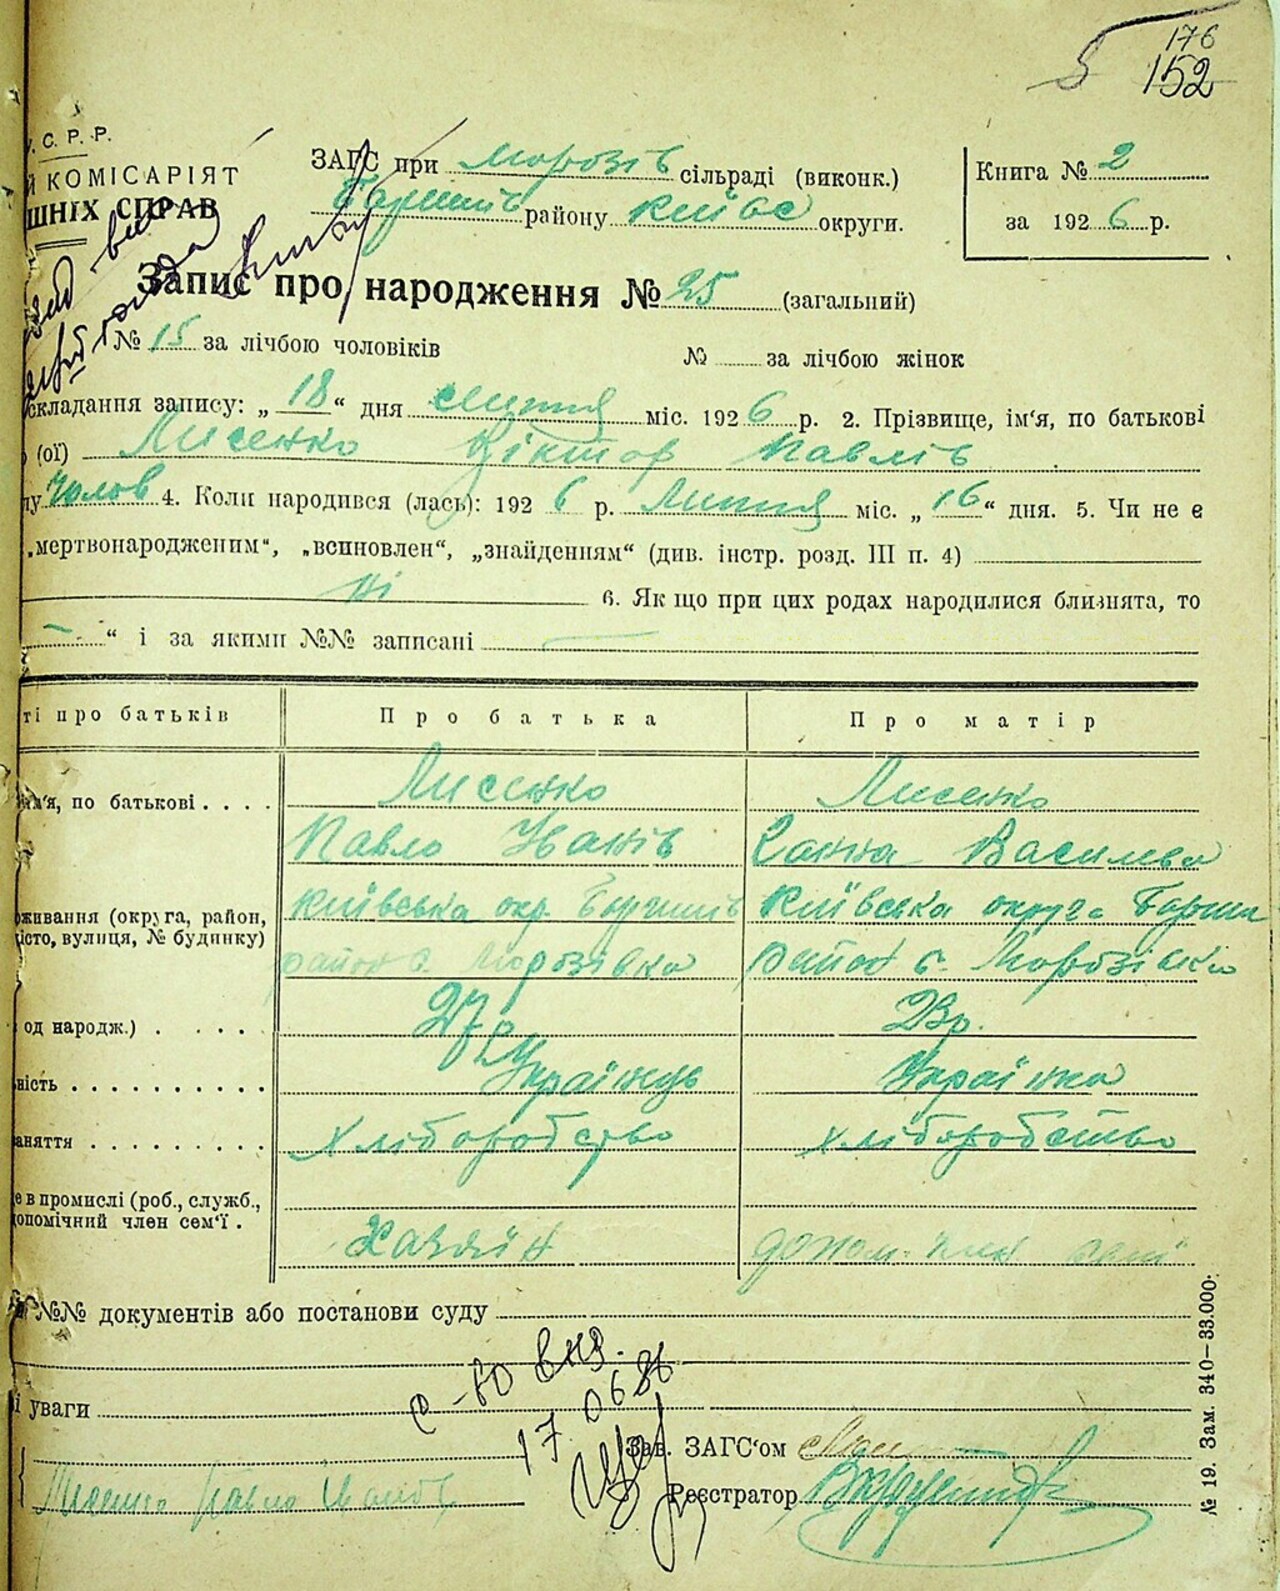 176
5 152
У. С. Р. Р.
Й КОМІСАРІЯТ
ШНІХ СПРАВ
ЗАГС при Морозів сільраді (виконк.)
Баришів району Київс округи.
Книга № 2
за 1926 р.
Запис про народження № 25 (загальний)
№ 15 за лічбою чоловіків № за лічбою жінок
складання запису: „ 18 “ дня Липня міс. 1926 р. 2. Прізвище, ім‘я, по батькові
(ої) Лисенко Віктор Павлів
чолов 4. Коли народився (лась): 1926 р. Липня міс. „ 16 “ дня. 5. Чи не є
„мертвонародженим“, „всиновлен“, „знайденням“ (див. інстр. розд. III п. 4)
Ні 6. Якщо при цих родах народилися близнята, то
“ і за якими №№ записані
ті про батьків Про батька Про матір
м‘я, по батькові Лисенко Лисенко
Павло Іванів Ганна Василева
живання (округа, район, Київська окр. Баришів Київська округа Бариш
істо, вулиця, № будинку) район с. Морозівка район с. Морозівка
од народж.) 27 р 23р.
ність Українець Українка
аняття Хліборобство хліборобство
е в промислі (роб., служб.,
опомічний член сем‘ї. Хазяїн допом. член семї
№№ документів або постанови суду
17 06 86
і уваги
Зав. ЗАГС‘ом
Лисенко Павло Іванів Реєстратор
№ 19. Зам. 340—33.000.